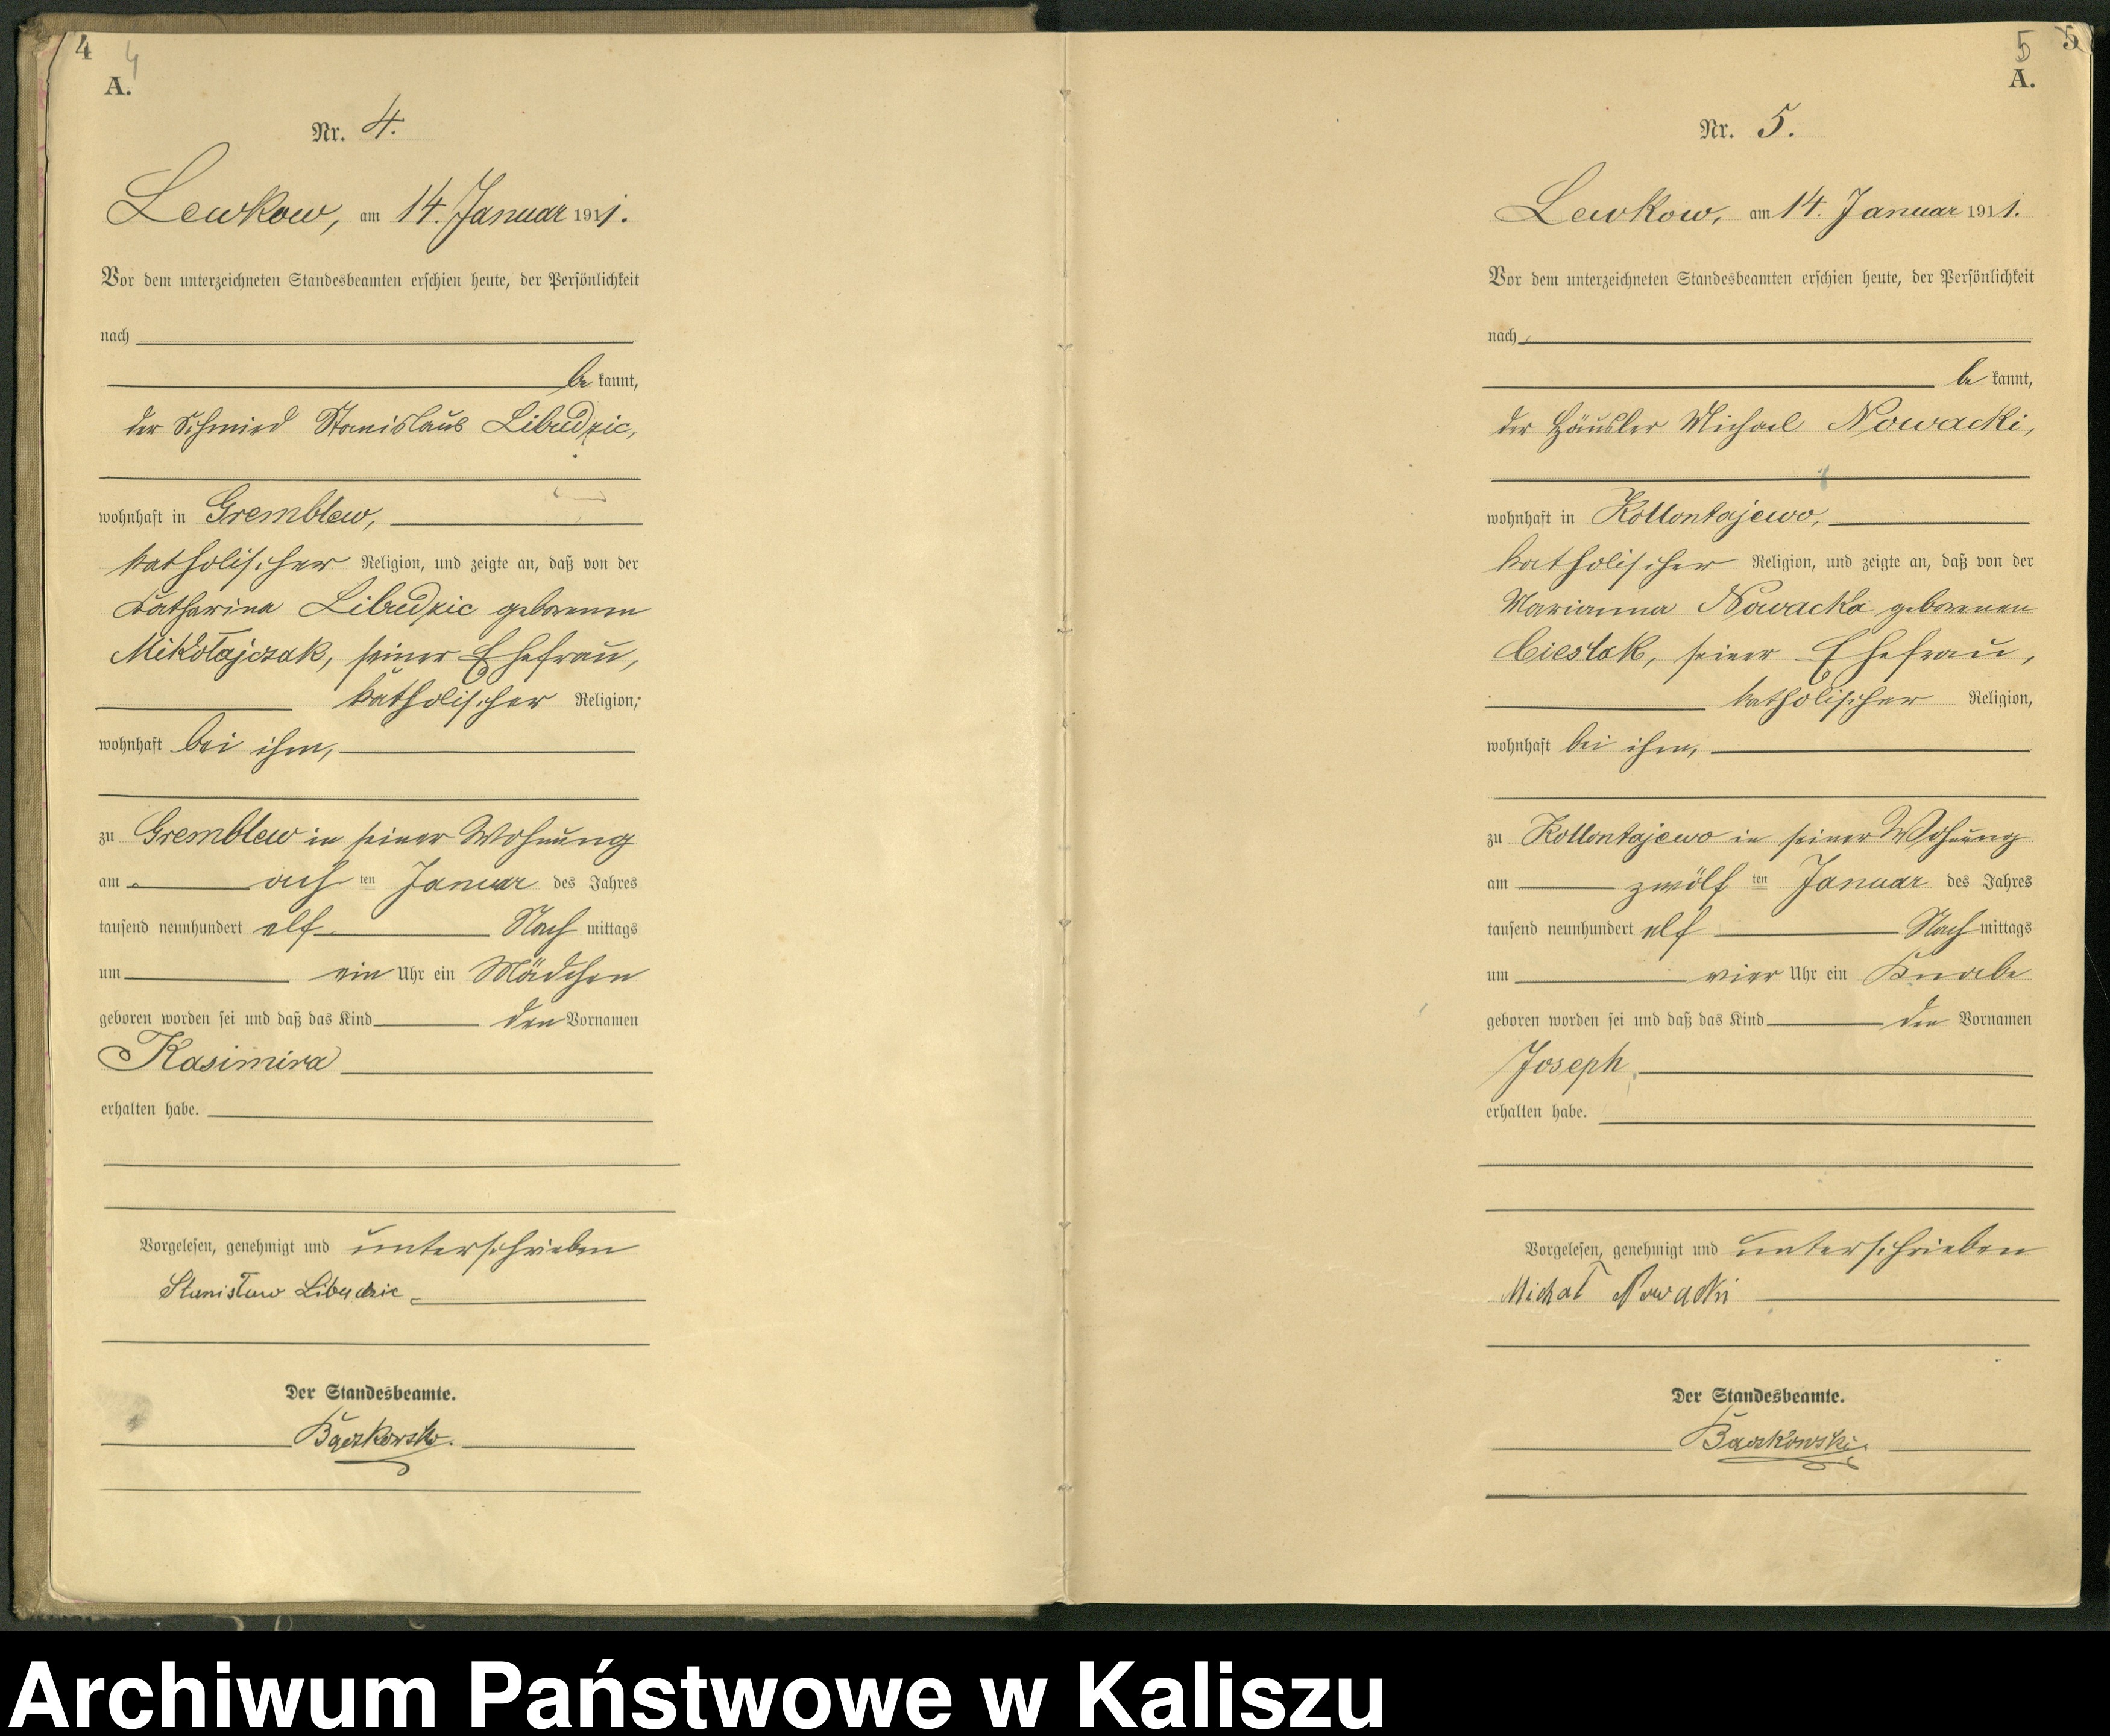 4 4
A.
Nr. 4.
Lewkow, am 14. Januar 1911.
Vor dem unterzeichneten Standesbeamten erschien heute, der Persönlichkeit
nach
be kannt,
der Schmied Stanislaus Libudzic,
wohnhaft in Gremblew,
katholischer Religion, und zeigte an, daß von der
Katharina Libudzic geborenen
Mikołajczak, seiner Ehefrau,
katholischer Religion,
wohnhaft bei ihm,
zu Gremblew in seiner Wohnung
am ach ten Januar des Jahres
tausend neunhundert elf Nach mittags
um ein Uhr ein Mädchen
geboren worden sei und daß das Kind den Vornamen
Kasimira
erhalten habe.
Vorgelesen, genehmigt und unterschrieben
Stanisław Libudzic
Der Standesbeamte.
Bączkowski.
5 5
A.
Nr. 5.
Lewkow, am 14. Januar 1911.
Vor dem unterzeichneten Standesbeamten erschien heute, der Persönlichkeit
nach
be kannt,
der Häusler Michael Nowacki,
wohnhaft in Kollontajewo,
katholischer Religion, und zeigte an, daß von der
Marianna Nowacka geborenen
Cieslak, seiner Ehefrau,
katholischer Religion,
wohnhaft bei ihm,
zu Kollontajewo in seiner Wohnung
am zwölf ten Januar des Jahres
tausend neunhundert elf Nach mittags
um vier Uhr ein Knabe
geboren worden sei und daß das Kind den Vornamen
Joseph
erhalten habe.
Vorgelesen, genehmigt und unterschrieben
Michał Nowacki
Der Standesbeamte.
Bączkowski.
Archiwum Państwowe w Kaliszu